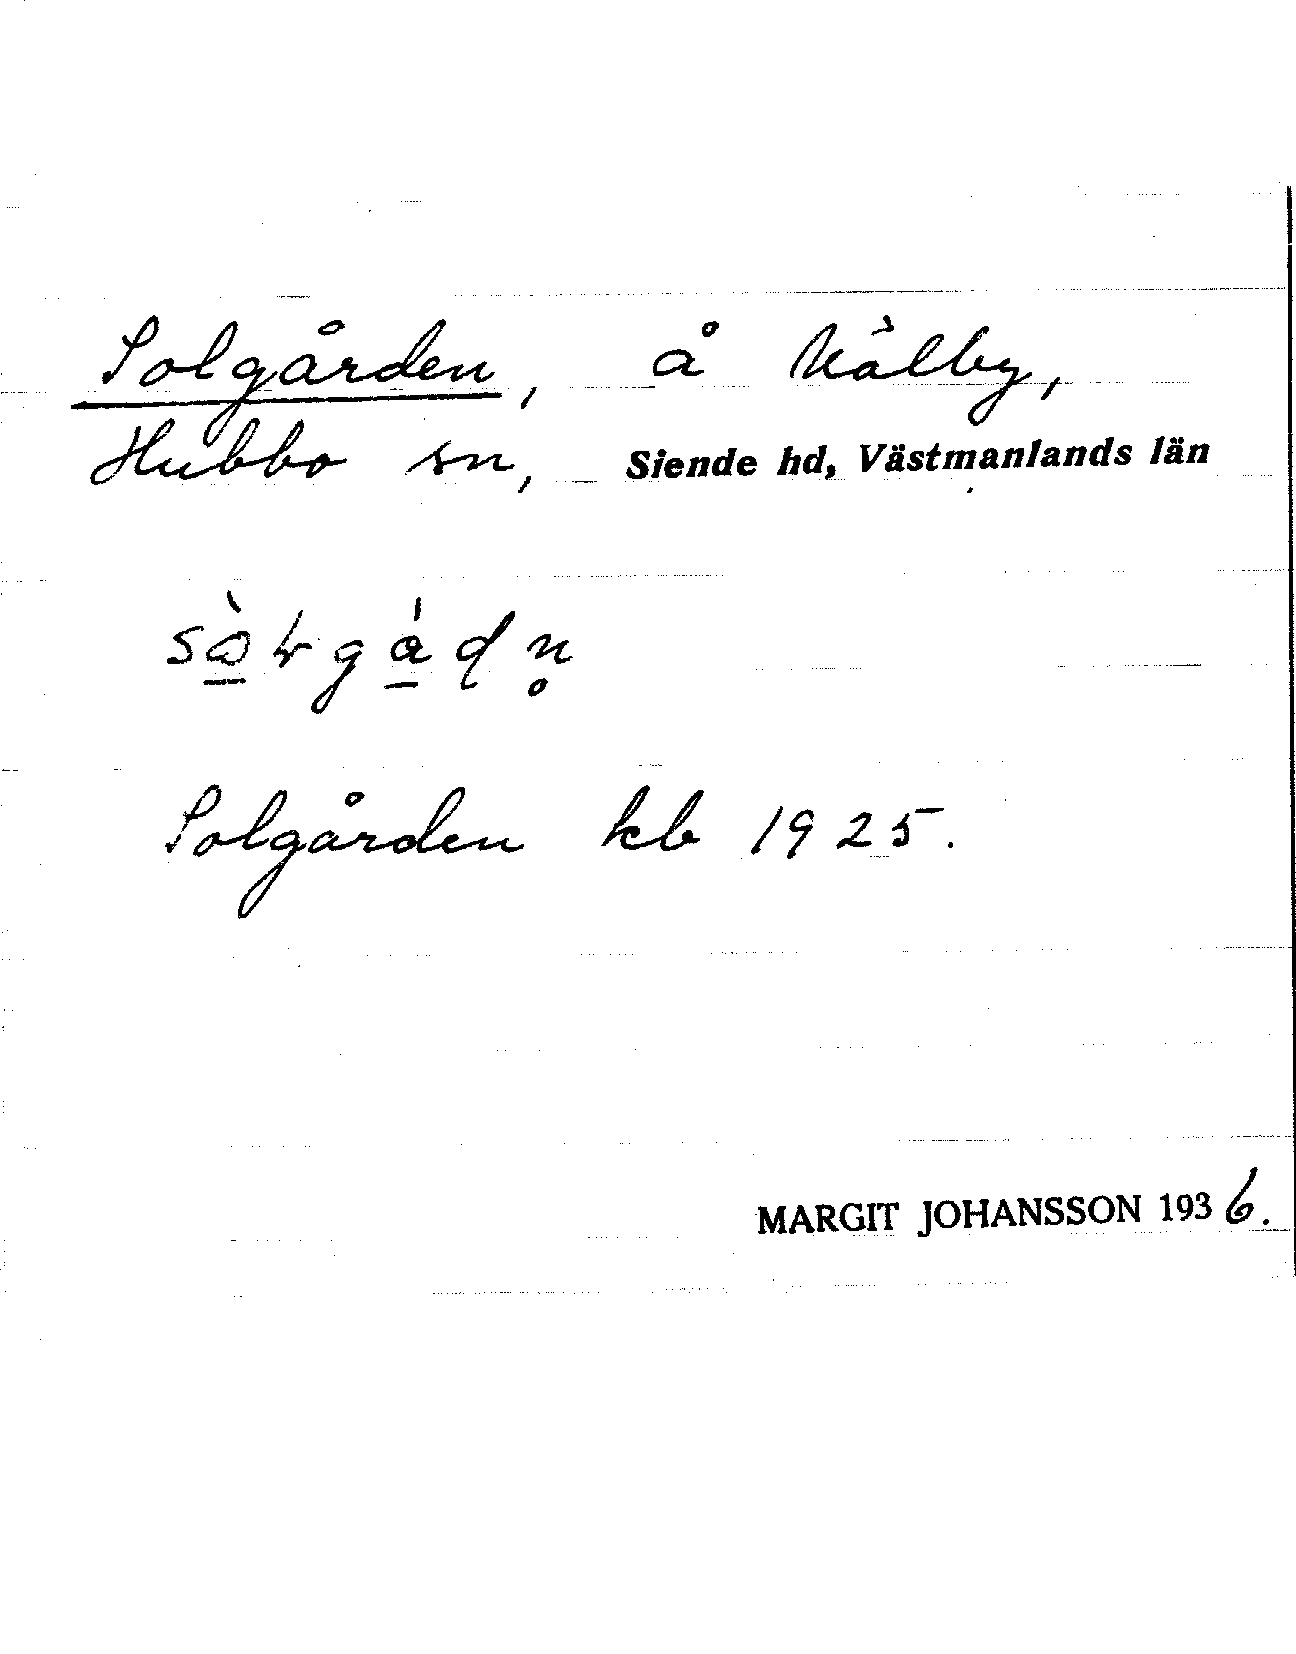 Solgården, å Kålby,
Hubbo sn, Siende hd, Västmanlands län
Solgården kb 1925.
MARGIT JOHANSSON 1936.